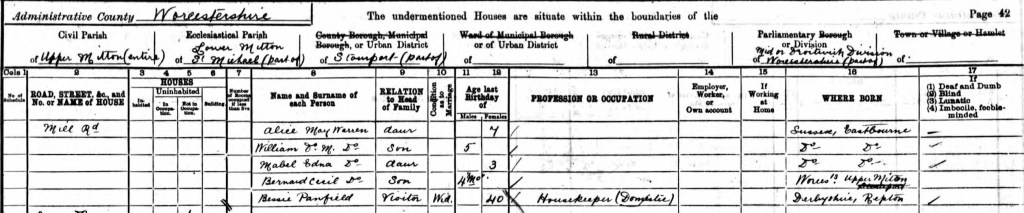 Administrative County Worcestershire The undermentioned Houses are situate within the boundaries of the Page 42
Civil Parish Ecclesiastical Parish County Borough, Municipal Borough, or Urban District Ward of Municipal Borough or of Urban District Rural District Parliamentary Borough or Division Town or Village or Hamlet
of Upper Mitton (entire) of Lower Mitton St Michael (part of) of Stourport (part of) of of of Mid or Droitwich Division of Worcestershire (part of) of
Cols 1 2 3 4 5 6 7 8 9 10 11 12 13 14 15 16 17
No. of Schedule ROAD, STREET, &c., and No. or NAME of HOUSE HOUSES Inhabited Uninhabited In Occupation Not in Occupation Building Number of Rooms occupied if less than five Name and Surname of each Person RELATION to Head of Family Condition as to Marriage Age last Birthday of Males Females PROFESSION OR OCCUPATION Employer, Worker, or Own account If Working at Home WHERE BORN If (1) Deaf and Dumb (2) Blind (3) Lunatic (4) Imbecile, feeble-minded
Mill Rd Alice May Warren daur 7 Sussex, Eastbourne
William Do M. Do Son 5 Do Do
Mabel Edna Do daur 3 Do Do
Bernard Cecil Do Son 4 Mos. Worcs Upper Mitton
Bessie Panfield Visitor Wid. 40 Housekeeper (Domestic) Derbyshire, Repton